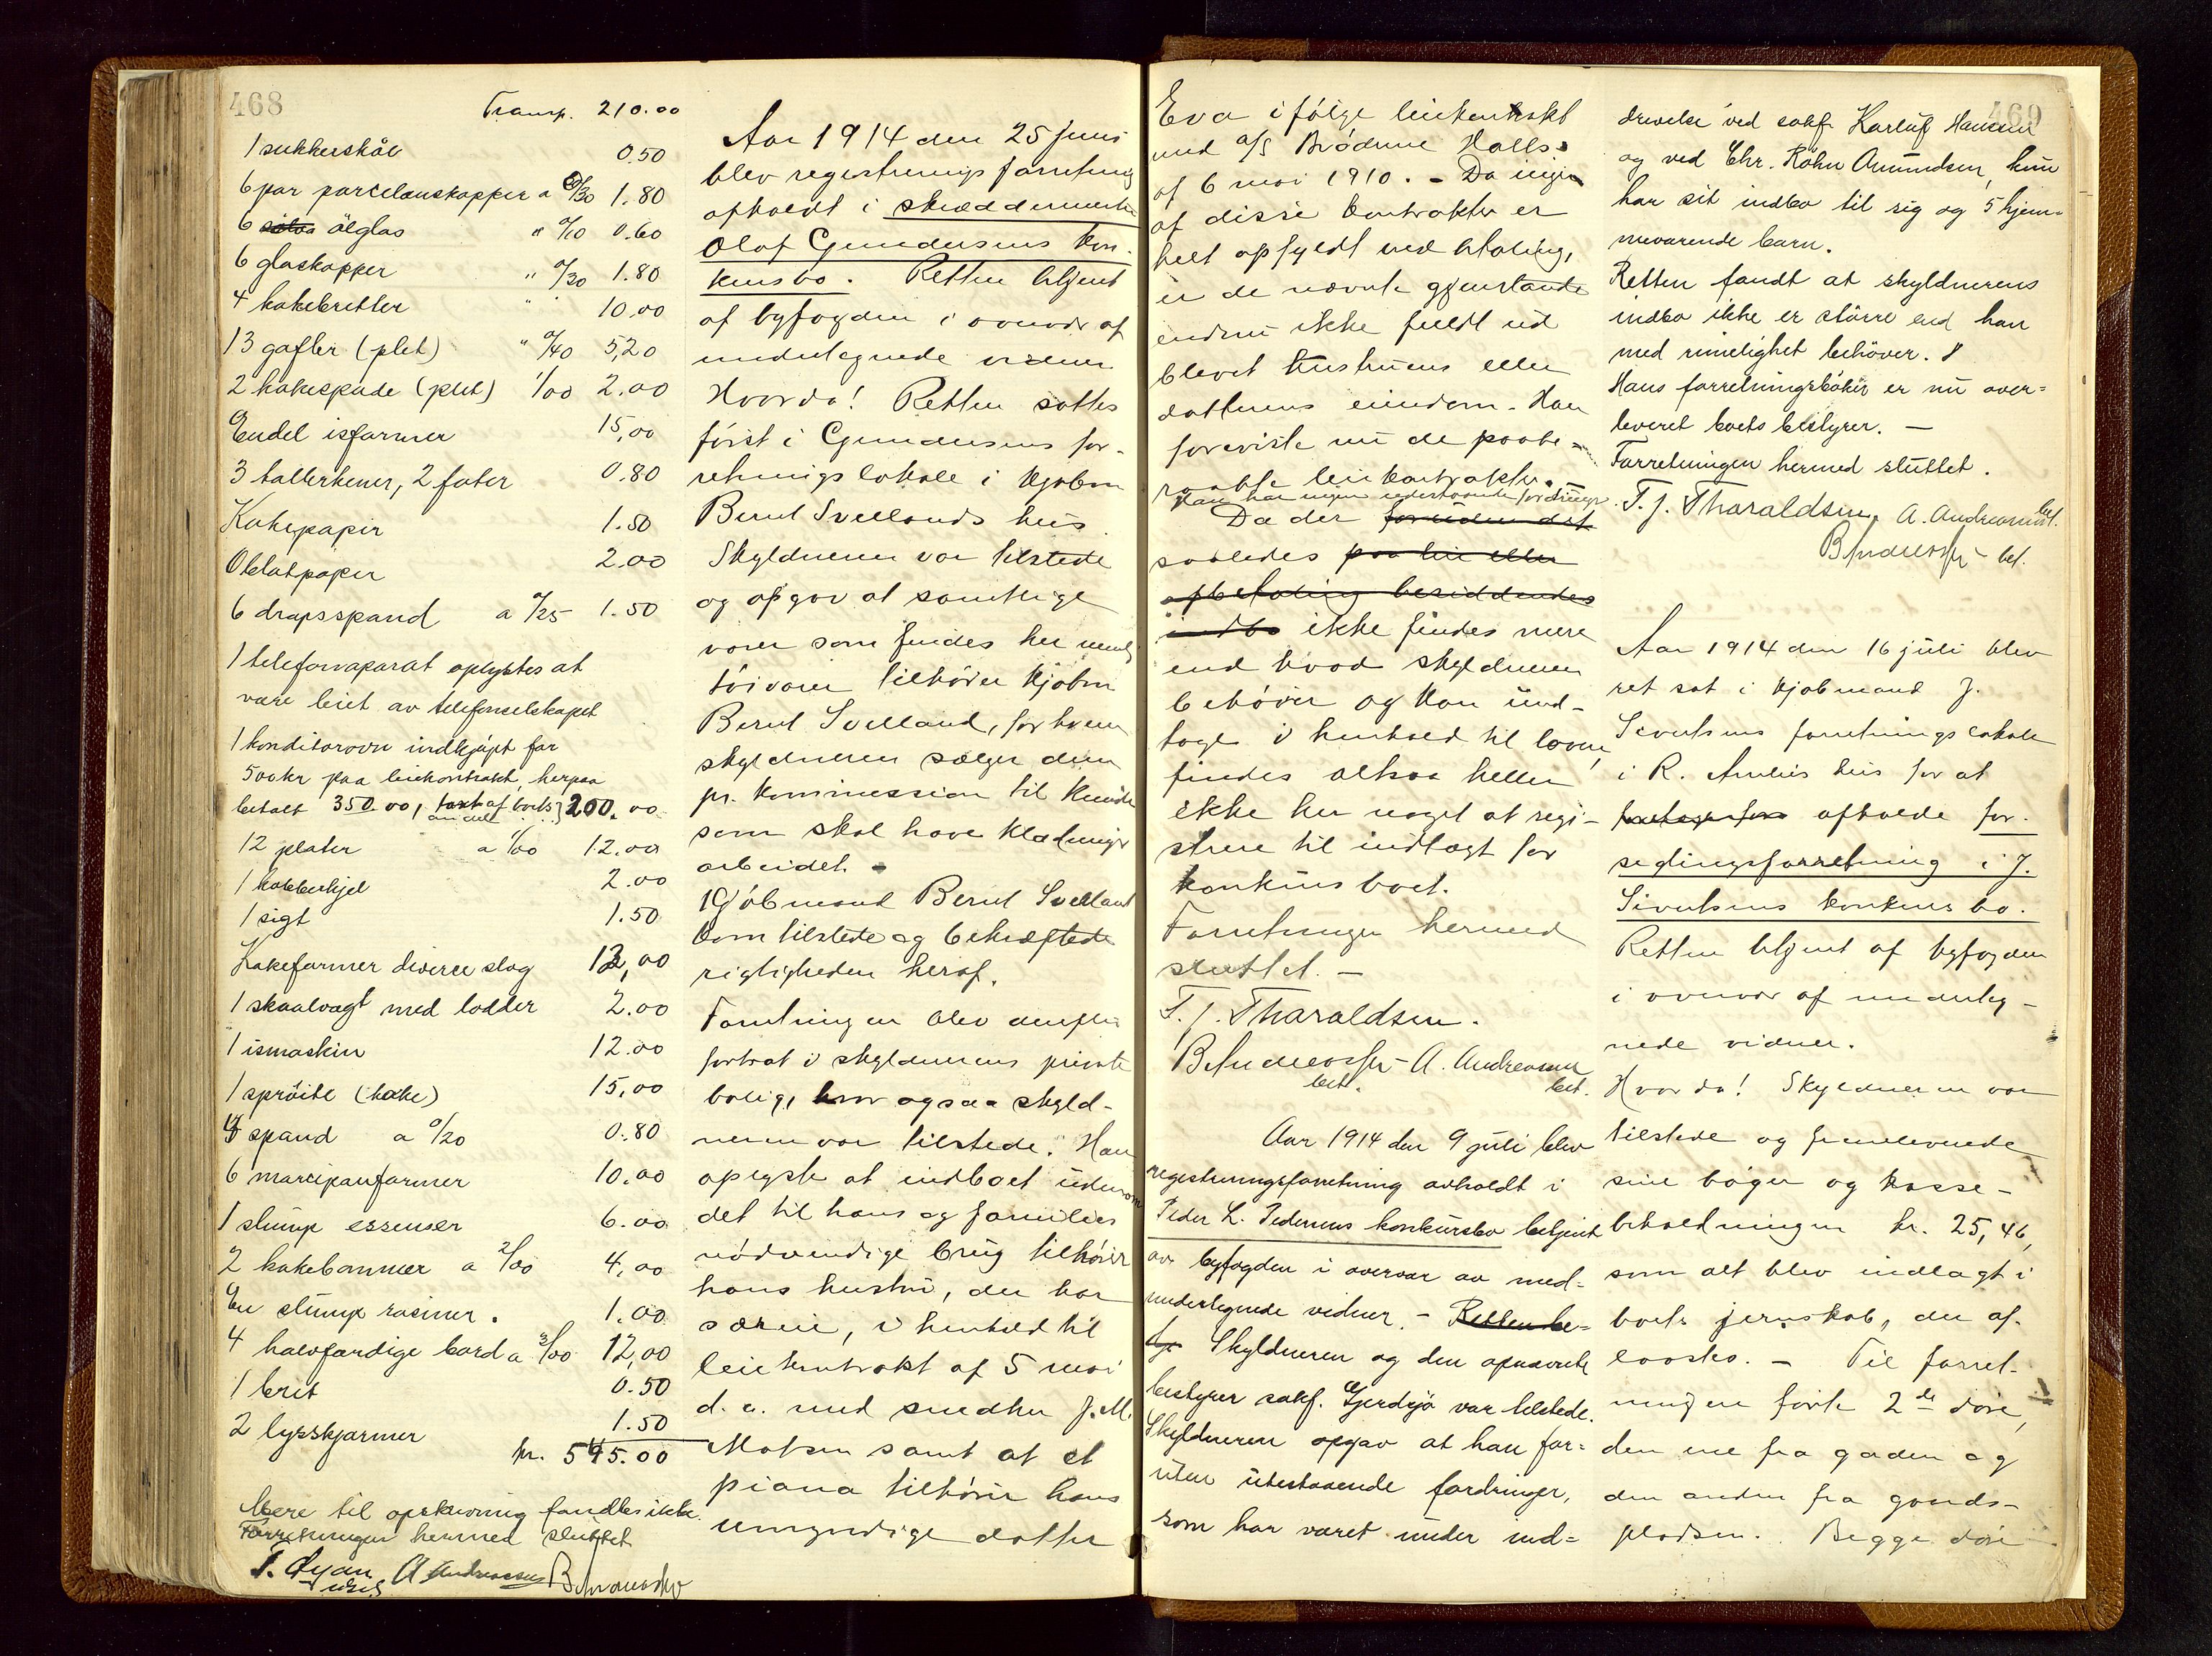 468
Transp. 210.00
1 sukkerskål 0.50
6 par porcelanskopper a 0/30 1.80
6 ølglas " 0/10 0.60
6 glaskopper " 0/30 1.80
4 kakebretter " 10.00
13 gafler (plet) " 0/40 5,20
2 kakespade (plet) 1/00 2.00
Endel isformer 15,00
3 tallerkener, 2 fater 0.80
Kakepapir 1.50
Oblatpapir 2.00
6 dropsspand a 0/25 1.50
1 telefonaparat oplystes at
være leiet av telefonselskapet
1 konditorovn indkjøpt for
500 kr paa leiekontrakt, herpaa
betalt 350.00, takst af boets andel 200.00
12 plater a 1/00 12.00
1 kobberkjel 2.00
1 sigt 1.50
Kakeformer diverse slag 12,00
1 skaalvegt med lodder 2.00
1 ismaskin 12.00
1 sprøite (kake) 15,00
4 spand a 0/20 0.80
6 marcipanformer 10.00
1 slump essenser 6.00
2 kakebommer a 2/00 4,00
En slump rosiner. 1.00
4 halvfærdige bord a 3/00 12,00
1 brit 0.50
2 lysskjærmer 1.50
kr. 545.00
Mere til opskrivning fandtes ikke.
Forretningen hermed sluttet
A Andreassen
Aar 1914 den 25 juni
blev registrerings forretning
afholdt i skræddermester
Olaf Gundersens kon-
kursbo. Retten betjent
af byfogden i overvær af
undertegnede vidner
Hvorda! Retten sattes
først i Gundersens for-
retningslokale i kjøbm
Bernt Svellands hus
Skyldneren var tilstede
og opgav at samtlige
varer som findes her nemlig
tøivarer tilhører kjøbm
Bernt Svelland, for hvem
skyldneren sælger dem
pr. kommission til kunder
som skal have klædninger
arbeidet.
Kjøbmand Bernt Svelland
kom tilstede og bekræftede
rigtigheden heraf.
Forretningen blev derefter
fortsat i skyldnerens private
bolig, hvor ogsaa skyld-
neren var tilstede. Han
oplyste at indboet udenom
det til hans og families
nødvendige brug tilhører
hans hustru, der har
særeie, i henhold til
leiekontrakt af 5 mai
d. a. med snedker J. M.
Matsen samt at et
piano tilhører hans
umyndige datter
Eva ifølge leiekontrakt
med a/s Brødrene Halls
af 6 mai 1910. - Da ingen
af disse kontrakter er
helt opfyldt ved betaling,
er de nævnte gjenstande
endnu ikke fuldt ud
blevet hustruens eller
datterens eiendom. Han
foreviste nu de paabe-
raabte leiekontrakter.
Han har ingen udestaaende fordringer.
Da der foruden det
saaledes paa leie eller
afbetaling besiddendes
indbo ikke findes mere
end hvad skyldneren
behøver og kan und-
tage i henhold til loven,
findes altsaa heller
ikke her noget at regi-
strere til indtægt for
konkursboet.
Forretningen hermed
sluttet. -
T. J. Tharaldsen.
A. Andreassen
bet. bet.
Aar 1914 den 9 juli blev
registreringsforretning avholdt i
Peder L. Pedersens konkursbo betjent
av byfogden i overvær av med-
undertegnede vidner. - Retten be-
tje Skyldneren og den opnævnte
bestyrer sakf. Gjerdsjø var tilstede.
Skyldneren opgav at han for-
uten utestaaende fordringer,
som har været under ind-
469
drivelse ved sakf. Karluf Hansen
og ved Chr. Røhn Amundsen, kun
har sit indbo til sig og 5 hjem-
meværende barn.
Retten fandt at skyldnerens
indbo ikke er større end han
med rimelighet behøver.
Hans forretningsbøker er nu over-
leveret boets bestyrer. -
Forretningen hermed sluttet.
T. J. Tharaldsen. A. Andreassen bet.
bet.
Aar 1914 den 16 juli blev
ret sat i kjøbmand J.
Sivertsens forretningslokale
i R. hus for at
foretage for afholde for-
seglingsforretning i J.
Sivertsens konkursbo.
Retten betjent af byfogden
i overvær af underteg-
nede vidner.
Hvorda! Skyldneren var
tilstede og fremleverede
sine bøger og kasse-
beholdningen kr. 25,46,
som alt blev indlagt i
boets jernskab, der af-
laastes. - Til forret-
ningen førte 2de døre,
den ene fra gaden og
den anden fra gaards-
pladsen. Begge døre